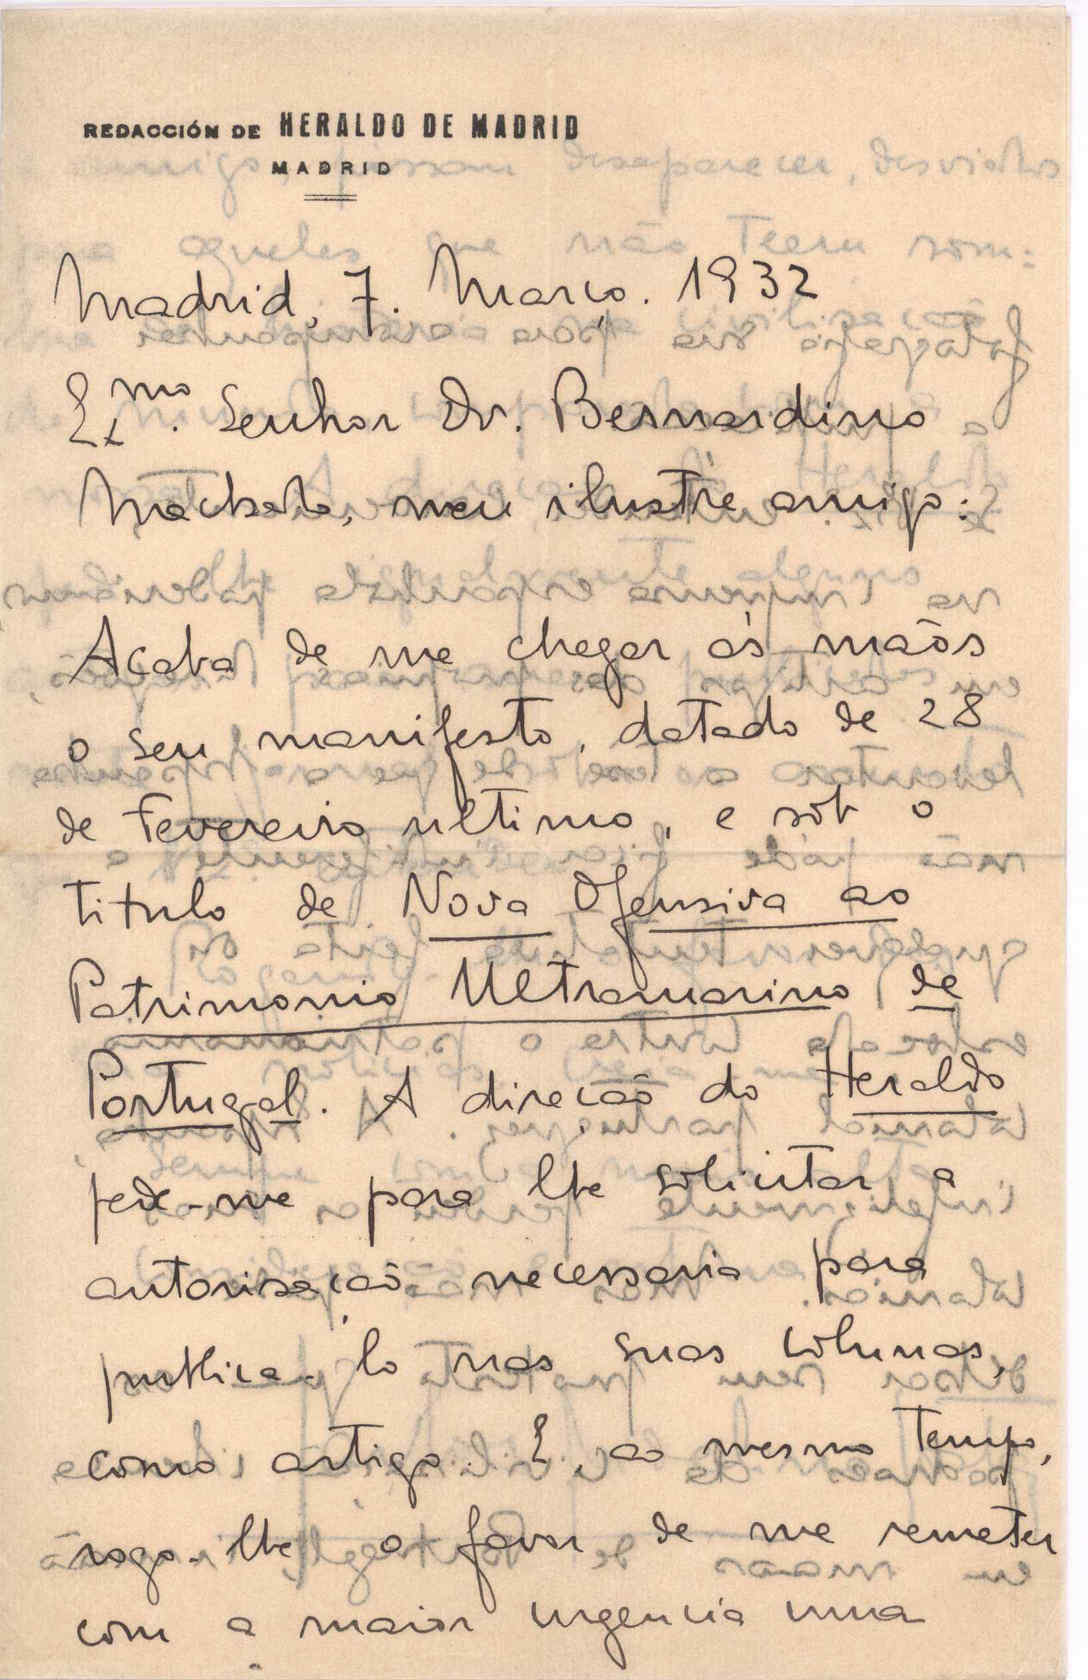 REDACCIÓN DE HERALDO DE MADRID
MADRID
Madrid, 7. Março. 1932
Exmo. Senhor Dr. Bernardino
Machado, meu ilustre amigo:
Acaba de me chegar ás mãos
o seu manifesto, datado de 28
de Fevereiro ultimo, e sob o
titulo de Nova Ofensiva ao
Patrimonio Ultramarino de
Portugal. A direcção do Heraldo
pede-me para lhe solicitar a
autorisação necessaria para
publica-lo nas suas colunas,
como artigo. E, ao mesmo tempo,
rogo-lhe o favor de me remeter
com a maior urgencia uma